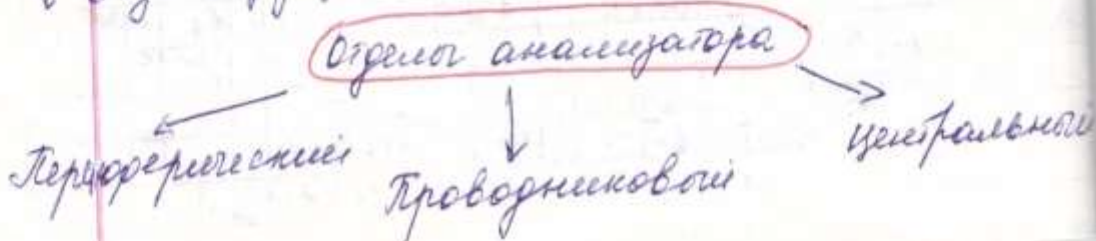 Отделы анализатора
Периферический
Проводниковый
Центральный